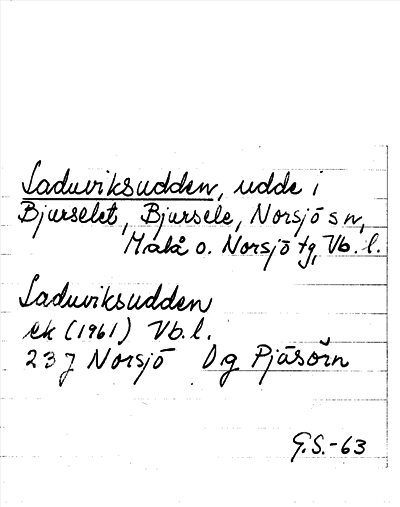 Laduviksudden, udde i
Bjurselet, Bjursele, Norsjö sn,
Malå o. Norsjö tg, Vb. l.
Laduviksudden
ek (1961) Vb. l.
23 J Norsjö D g Pjäsörn
G.S.-63